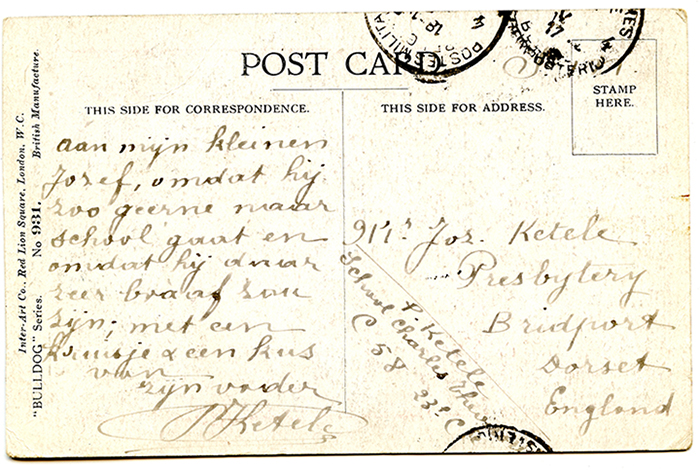 POST CARD
THIS SIDE FOR CORRESPONDENCE.
THIS SIDE FOR ADDRESS.
STAMP
HERE.
aan mijn kleinen
Jozef, omdat hij
zoo geerne naar
school gaat en
omdat hij daar
zeer braaf zou
zijn; met een
kruisje & een kus
van
zijn vader
P Ketele
Mr Joz. Ketele
Presbytery
Bridport
Dorset
England
P. Ketele
School Charles
C 58 23e C
Inter-Art Co., Red Lion Square, London, W.C. British Manufacture.
"BULLDOG" Series. No 931.
POSTES MILITA